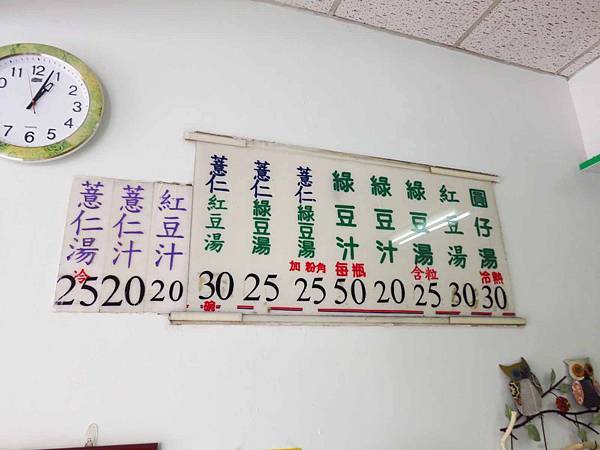 圓仔湯
冷熱
30
紅豆湯
30
綠豆湯
含粒
25
綠豆汁
20
綠豆汁
每瓶
50
薏仁綠豆湯
加粉角
25
薏仁綠豆湯
25
薏仁紅豆湯
30
碗
紅豆汁
20
薏仁汁
20
薏仁湯
冷
25
11 12 1 2 3 4 5 6 7